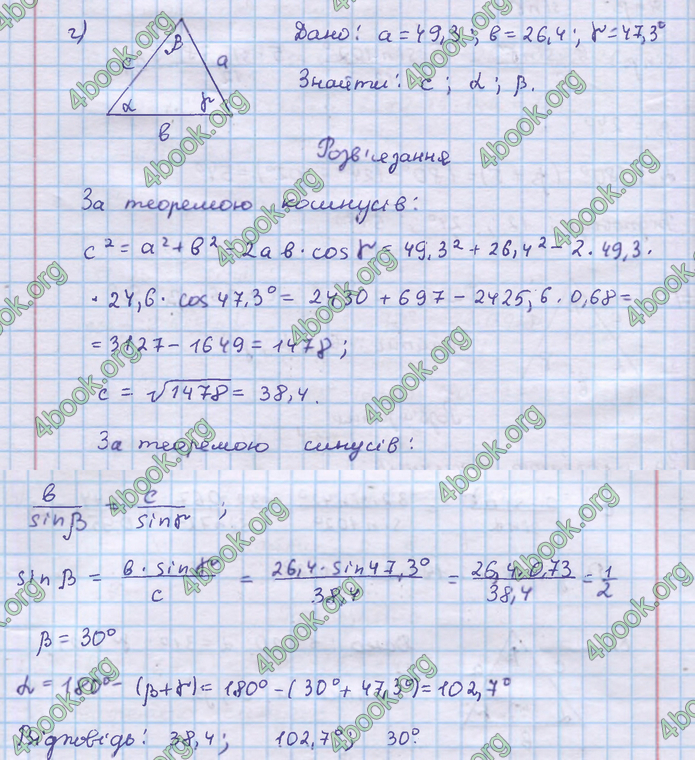 г)
β
c
a
α
γ
в
Дано: a = 49,3; в = 26,4; γ = 47,3°
Знайти: c; α; β.
Розв'язання
За теоремою косинусів:
c² = a² + в² - 2aв · cos γ = 49,3² + 26,4² - 2 · 49,3 ·
· 24,6 · cos 47,3° = 2430 + 697 - 2425,6 · 0,68 =
= 3127 - 1649 = 1478;
c = √1478 = 38,4.
За теоремою синусів:
в/sin β = c/sin γ ;
sin β = в · sin γ/c = 26,4 · sin 47,3°/38,4 = 26,4 · 0,73/38,4 = 1/2
β = 30°
α = 180° - (β + γ) = 180° - (30° + 47,3°) = 102,7°
Відповідь: 38,4; 102,7°; 30°.
4book.org